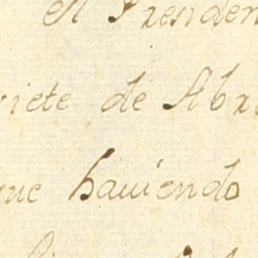 El Presiden
siete de Abr
que haviendo